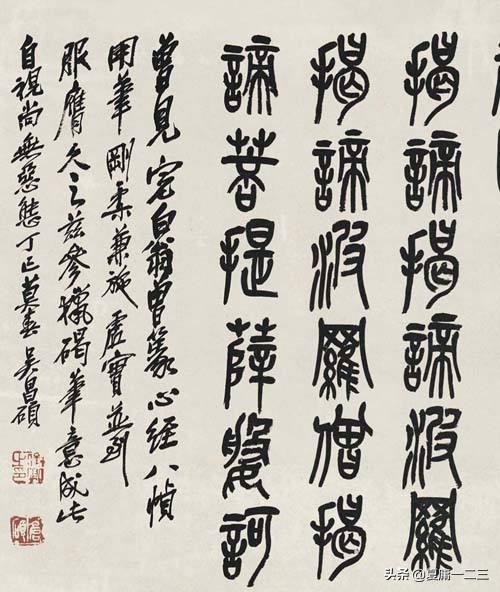 揭諦揭諦波羅
揭諦波羅僧揭
諦菩提薛媻訶
曾見完白翁曾篆心經八幀
用筆剛柔兼施虛實並到
服膺久之茲參獵碣筆意成此
自視尚無惡態丁巳莫春吳昌碩
俊卿之印
倉碩
头条 @庸一二三